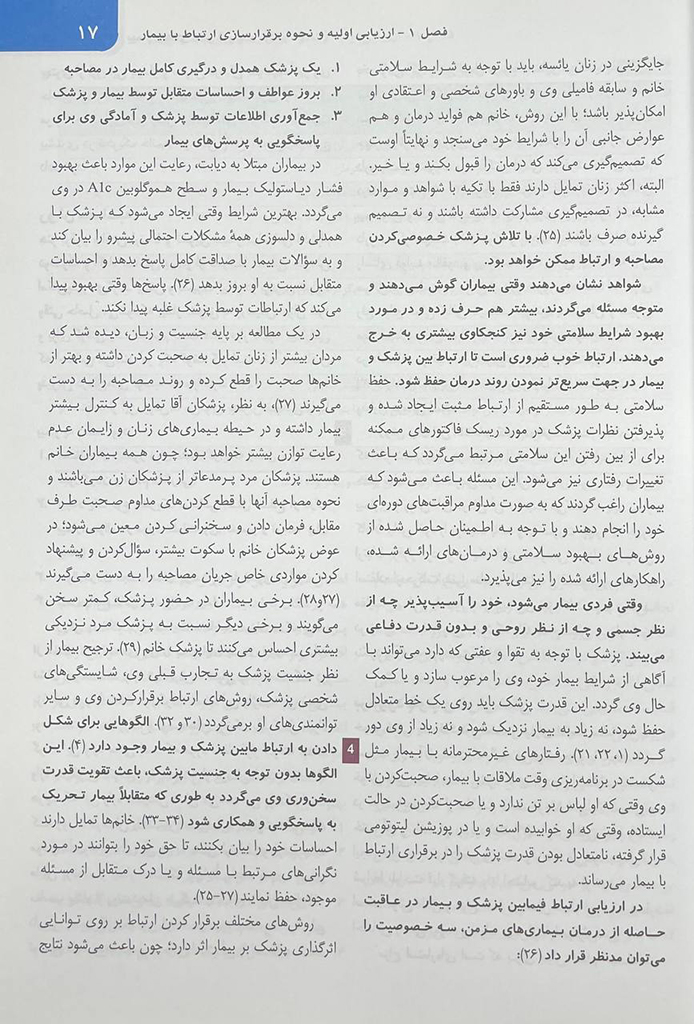 فصل ۱- ارزیابی اولیه و نحوه برقرارسازی ارتباط با بیمار
۱۷
جایگزینی در زنان یائسه، باید با توجه به شرایط سلامتی
خانم و سابقه فامیلی وی و باورهای شخصی و اعتقادی او
امکان‌پذیر باشد؛ با این روش، خانم هم فواید درمان و هم
عوارض جانبی آن را با شرایط خود می‌سنجد و نهایتاً اوست
که تصمیم‌گیری می‌کند که درمان را قبول بکند و یا خیر.
البته، اکثر زنان تمایل دارند فقط با تکیه با شواهد و موارد
مشابه، در تصمیم‌گیری مشارکت داشته باشند و نه تصمیم
گیرنده صرف باشند (۲۵). با تلاش پزشک خصوصی‌کردن
مصاحبه و ارتباط ممکن خواهد بود.
شواهد نشان می‌دهند وقتی بیماران گوش می‌دهند و
متوجه مسئله می‌گردند، بیشتر هم حرف زده و در مورد
بهبود شرایط سلامتی خود نیز کنجکاوی بیشتری به خرج
می‌دهند. ارتباط خوب ضروری است تا ارتباط بین پزشک و
بیمار در جهت سریع‌تر نمودن روند درمان حفظ شود. حفظ
سلامتی به طور مستقیم از ارتباط مثبت ایجاد شده و
پذیرفتن نظرات پزشک در مورد ریسک فاکتورهای ممکنه
برای از بین رفتن این سلامتی مرتبط می‌گردد که باعث
تغییرات رفتاری نیز می‌شود. این مسئله باعث می‌شود که
بیماران راغب گردند که به صورت مداوم مراقبت‌های دوره‌ای
خود را انجام دهند و با توجه به اطمینان حاصل شده از
روش‌های بهبود سلامتی و درمان‌های ارائه شده،
راهکارهای ارائه شده را نیز می‌پذیرد.
وقتی فردی بیمار می‌شود، خود را آسیب‌پذیر چه از
نظر جسمی و چه از نظر روحی و بدون قدرت دفاعی
می‌بیند. پزشک با توجه به تقوا و عفتی که دارد می‌تواند با
آگاهی از شرایط بیمار خود، وی را مرعوب سازد و یا کمک
حال وی گردد. این قدرت پزشک باید روی یک خط متعادل
حفظ شود، نه زیاد به بیمار نزدیک شود و نه زیاد از وی دور
گردد (۱، ۲۲، ۲۱). رفتارهای غیرمحترمانه با بیمار مثل
شکست در برنامه‌ریزی وقت ملاقات با بیمار، صحبت‌کردن با
وی وقتی که او لباس بر تن ندارد و یا صحبت‌کردن در حالت
ایستاده، وقتی که او خوابیده است و یا در پوزیشن لیتوتومی
قرار گرفته، نامتعادل بودن قدرت پزشک را در برقراری ارتباط
با بیمار می‌رساند.
در ارزیابی ارتباط فیمابین پزشک و بیمار در عاقبت
حاصله از درمان بیماری‌های مزمن، سه خصوصیت را
می‌توان مدنظر قرار داد (۲۶):
۱. یک پزشک همدل و درگیری کامل بیمار در مصاحبه
۲. بروز عواطف و احساسات متقابل توسط بیمار و پزشک
۳. جمع‌آوری اطلاعات توسط پزشک و آمادگی وی برای
پاسخگویی به پرسش‌های بیمار
در بیماران مبتلا به دیابت، رعایت این موارد باعث بهبود
فشار دیاستولیک بیمار و سطح هموگلوبین A1c در وی
می‌گردد. بهترین شرایط وقتی ایجاد می‌شود که پزشک با
همدلی و دلسوزی همهٔ مشکلات احتمالی پیشرو را بیان کند
و به سؤالات بیمار با صداقت کامل پاسخ بدهد و احساسات
متقابل نسبت به او بروز بدهد (۲۶). پاسخ‌ها وقتی بهبود پیدا
می‌کند که ارتباطات توسط پزشک غلبه پیدا نکند.
در یک مطالعه بر پایه جنسیت و زبان، دیده شد که
مردان بیشتر از زنان تمایل به صحبت کردن داشته و بهتر از
خانم‌ها صحبت را قطع کرده و روند مصاحبه را به دست
می‌گیرند (۲۷)، به نظر، پزشکان آقا تمایل به کنترل بیشتر
بیمار داشته و در حیطه بیماری‌های زنان و زایمان عدم
رعایت توازن بیشتر خواهد بود؛ چون همه بیماران خانم
هستند. پزشکان مرد پرمدعاتر از پزشکان زن می‌باشند و
نحوه مصاحبه آنها با قطع کردن‌های مداوم صحبت طرف
مقابل، فرمان دادن و سخنرانی کردن معین می‌شود؛ در
عوض پزشکان خانم با سکوت بیشتر، سؤال‌کردن و پیشنهاد
کردن مواردی خاص جریان مصاحبه را به دست می‌گیرند
(۲۷و۲۸). برخی بیماران در حضور پزشک، کمتر سخن
می‌گویند و برخی دیگر نسبت به پزشک مرد نزدیکی
بیشتری احساس می‌کنند تا پزشک خانم (۲۹). ترجیح بیمار از
نظر جنسیت پزشک به تجارب قبلی وی، شایستگی‌های
شخصی پزشک، روش‌های ارتباط برقرارکردن وی و سایر
توانمندی‌های او برمی‌گردد (۳۰ و ۳۲). الگوهایی برای شکل
دادن به ارتباط مابین پزشک و بیمار وجود دارد (۴). این
4
الگوها بدون توجه به جنسیت پزشک، باعث تقویت قدرت
سخن‌وری وی می‌گردد به طوری که متقابلاً بیمار تحریک
به پاسخگویی و همکاری شود (۳۴-۳۳). خانم‌ها تمایل دارند
احساسات خود را بیان بکنند، تا حق خود را بتوانند در مورد
نگرانی‌های مرتبط با مسئله و یا درک متقابل از مسئله
موجود، حفظ نمایند (۲۷-۲۵).
روش‌های مختلف برقرار کردن ارتباط بر روی توانایی
اثرگذاری پزشک بر بیمار اثر دارد؛ چون باعث می‌شود نتایج